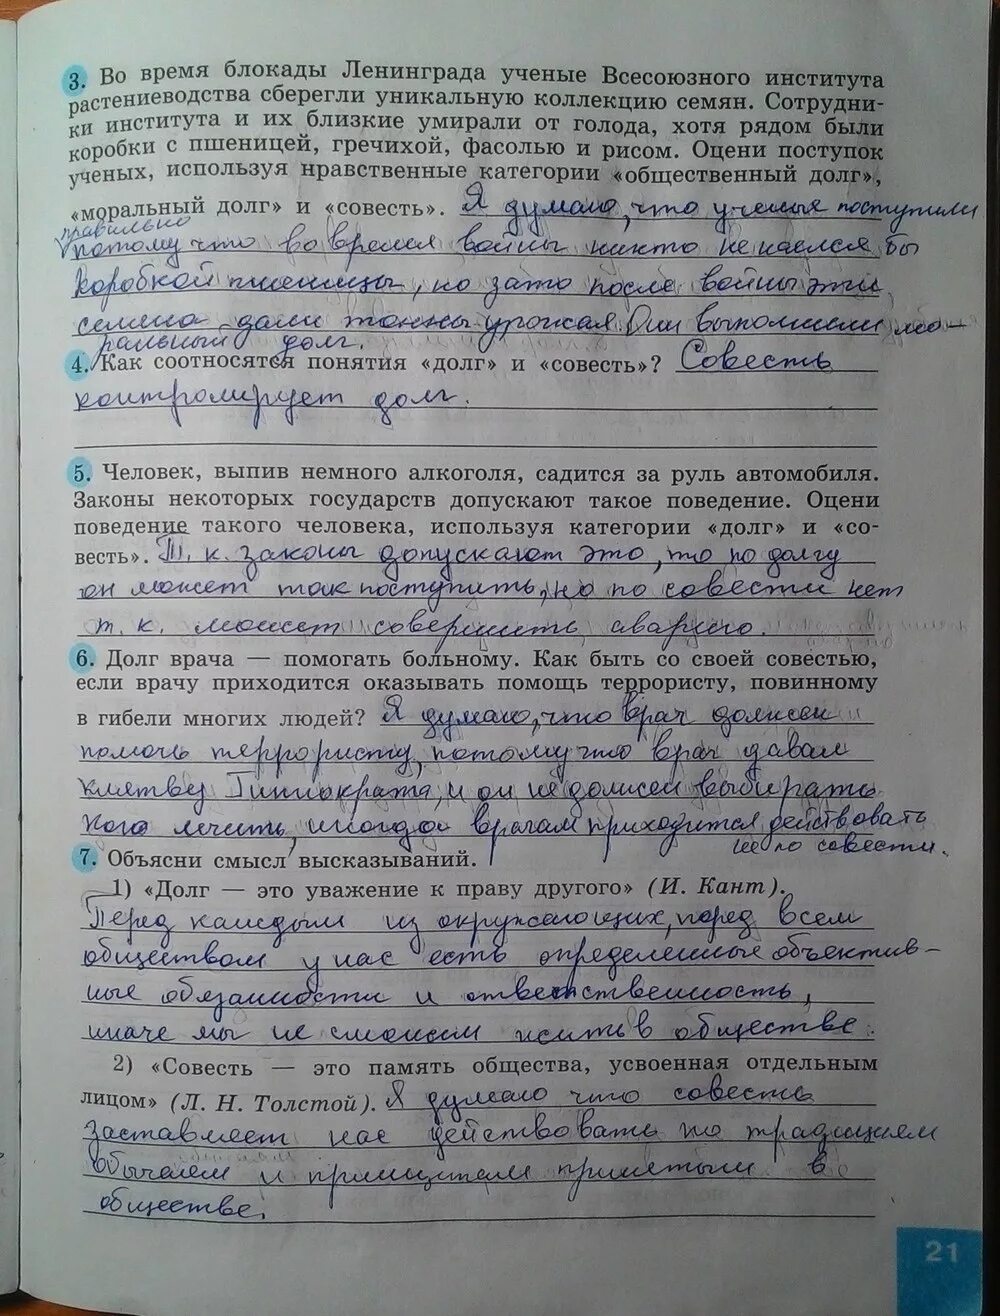 3. Во время блокады Ленинграда ученые Всесоюзного института
растениеводства сберегли уникальную коллекцию семян. Сотрудни-
ки института и их близкие умирали от голода, хотя рядом были
коробки с пшеницей, гречихой, фасолью и рисом. Оцени поступок
ученых, используя нравственные категории «общественный долг»,
«моральный долг» и «совесть». Я думаю, что ученые поступили
правильно
потому что во время войны никто не наелся бы
коробкой пшеницы, но зато после войны эти
семена дали тонны урожая. Они выполнили мо-
ральный долг.
4. Как соотносятся понятия «долг» и «совесть»? Совесть
контролирует долг.
5. Человек, выпив немного алкоголя, садится за руль автомобиля.
Законы некоторых государств допускают такое поведение. Оцени
поведение такого человека, используя категории «долг» и «со-
весть». Т. к. законы допускают это, то по долгу
он может так поступить, но по совести нет
т. к. может совершить аварию.
6. Долг врача — помогать больному. Как быть со своей совестью,
если врачу приходится оказывать помощь террористу, повинному
в гибели многих людей? Я думаю, что врач должен
помочь террористу, потому что врач давал
клятву Гиппократа, и он не должен выбирать
кого лечить, иногда врачам приходится действовать
не по совести.
7. Объясни смысл высказываний.
1) «Долг — это уважение к праву другого» (И. Кант).
Перед каждым из окружающих, перед всем
обществом у нас есть определенные объектив-
ные обязанности и ответственность,
иначе мы не сможем жить в обществе.
2) «Совесть — это память общества, усвоенная отдельным
лицом» (Л. Н. Толстой). Я думаю что совесть
заставляет нас действовать по традициям
обычаем и принципам принятыми в
обществе.
21